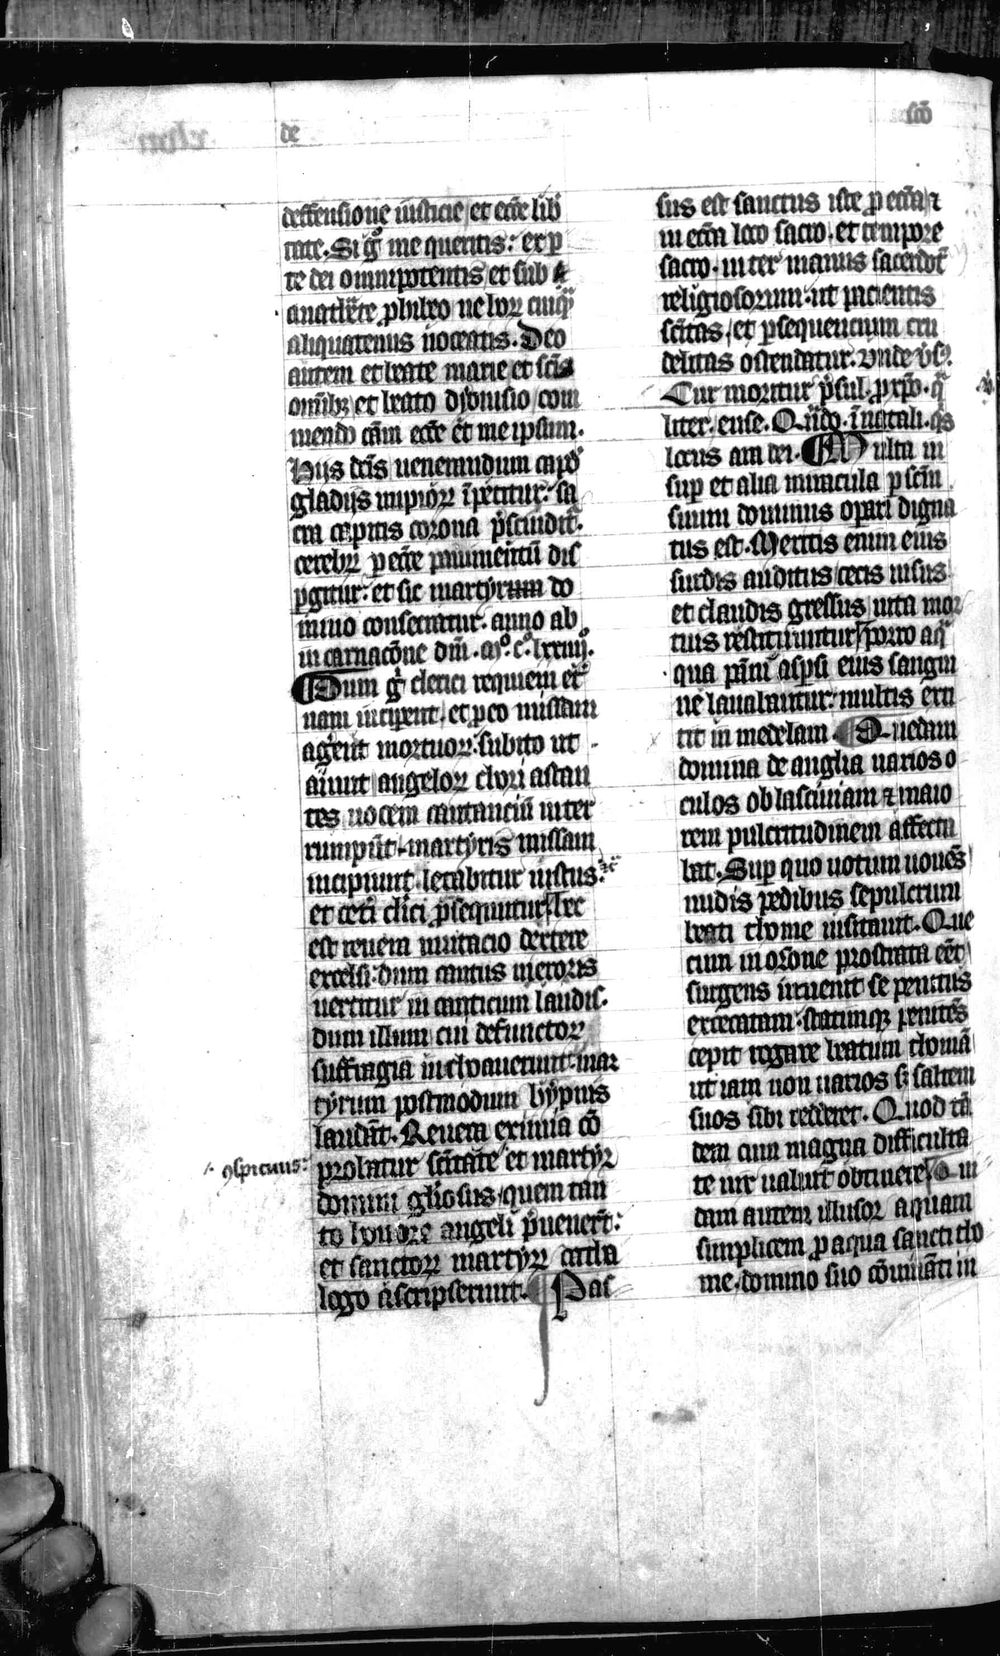 de
sco̅
deffensione iusticie et ecc̅e lib̅
tate. Si gͦ me queritis: ex p̲
te dei omnipotentis et sub
anathe̅te ꝓhibeo ne hoꝝ cuiqᷓ
aliquatenus noceatis. Deo
autem et beate marie et sc̅is
om̅ibꝫ et beato dyonisio com
mendo ca̅m ecc̅e et me ipsum.
Hijs dc̅is uenerandum capᵈ
gladijs impioꝝ i̅petitur: sa
cra capitis corona p̅scindit᷑.
cerebꝝ ꝑ ecc̅e pauimentu̅ dis
ꝑgitur: et sic martyrum do
mino consecratur. anno ab
incarnac̅one dn̅i. mͦ. cͦ. lxxiiijͦ.
Dum gͦ clerici requiem et᷑
nam inciperent et ꝓ eo missam
agerent mortuoꝝ: subito ut
aiunt angeloꝝ chori astan
tes uocem cantanciu̅ inter
rumpu̅t martyris missam
incipiunt letabitur iustus:
et cet̅i cl̅ici ꝓsequuntur hec
est reuera mutacio dextere
excelsi: dum cantus meroris
uertitur in canticum laudis.
dum illum cui defunctoꝝ
suffragia inchoauerunt mar
tyrum postmodum hympnis
laudu̅t. Reuera eximia co̅
prolatur sc̅itate et martyꝝ
ꝯspicuus:
domini gl̅iosus quem tan
to honore angeli p̅uener̅t:
et sanctoꝝ martyꝝ catha
logo ascripserunt. Pas
sus est sanctus iste ꝓ ecc̅a ⁊
in ecc̅a loco sacro. et tempore
sacro. inter manus sacerdot᷑
religiosorum. ut pacientis
sc̅itas et ꝑsequencium cru
delitas ostendatur. vnde v̅sꝰ.
Cur moritur p̅sul. ꝓ xp̅o. qᷓ
liter. ense. Qn̅do. i̅ natali. qͥs
locus ara dei. Multa in
suꝑ et alia miracula ꝑ sc̅m
suum dominus opari digna
tus est. Meritis enim eius
surdis auditus cecis uisus
et claudis gressus uita mor
tuis restituuntur porro aqᷓ
qua pa̅ni aspsi eius sangui
ne lauabantur: multis erti
tit in medelam. Quedam
domina de anglia uarios o
culos ob lasciuiam ⁊ maio
rem pulcritudinem affecta
bat. Suꝑ quo uotum uoue̅s
nudis pedibus sepulcrum
beati thome uisitauit. Que
cum in or̅one prostrata ee̅t
surgens inuenit se penitus
excecatam. statimqꝫ penite̅s
cepit rogare beatum thoma̅
ut iam non uarios sꝫ saltem
suos sibi redderet. Quod ta̅
dem cum magna difficulta
te uix ualuit obtinere Qui
dam autem illusor aquam
simplicem ꝓ aqua sancti tho
me. domino suo co̅uiua̅ti in